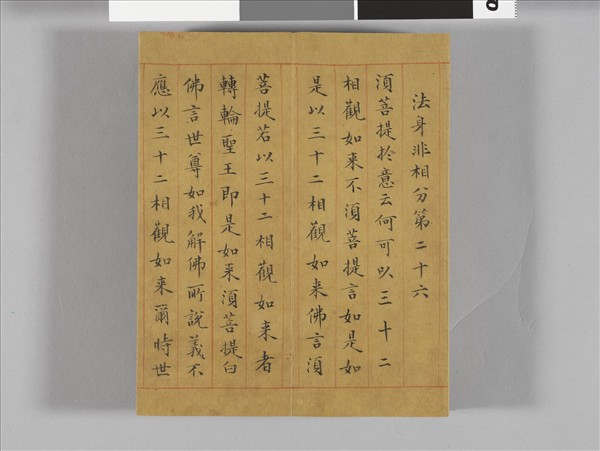 法身非相分第二十六
須菩提於意云何可以三十二
相觀如来不須菩提言如是如
是以三十二相觀如来佛言須
菩提若以三十二相觀如来者
轉輪聖王即是如来須菩提白
佛言世尊如我解佛所說義不
應以三十二相觀如来爾時世